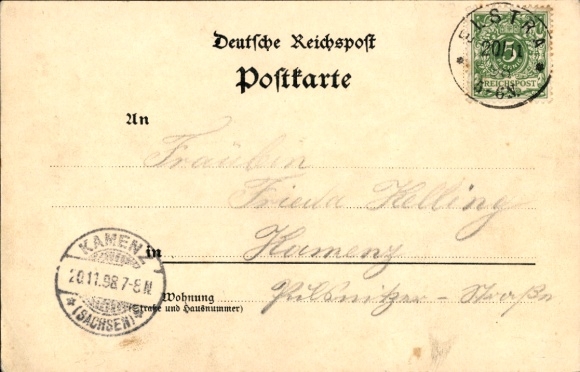 Deutsche Reichspost
Postkarte
ELSTRA
20/11
REICHSPOST
An
Fräulein
Frieda Helling
in Kamenz
KAMENZ
20.11.98 7-8 N
(SACHSEN)
Wohnung Pulsnitzer-Straße
(Straße und Hausnummer)